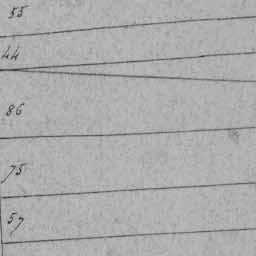 55
44
86
75
57